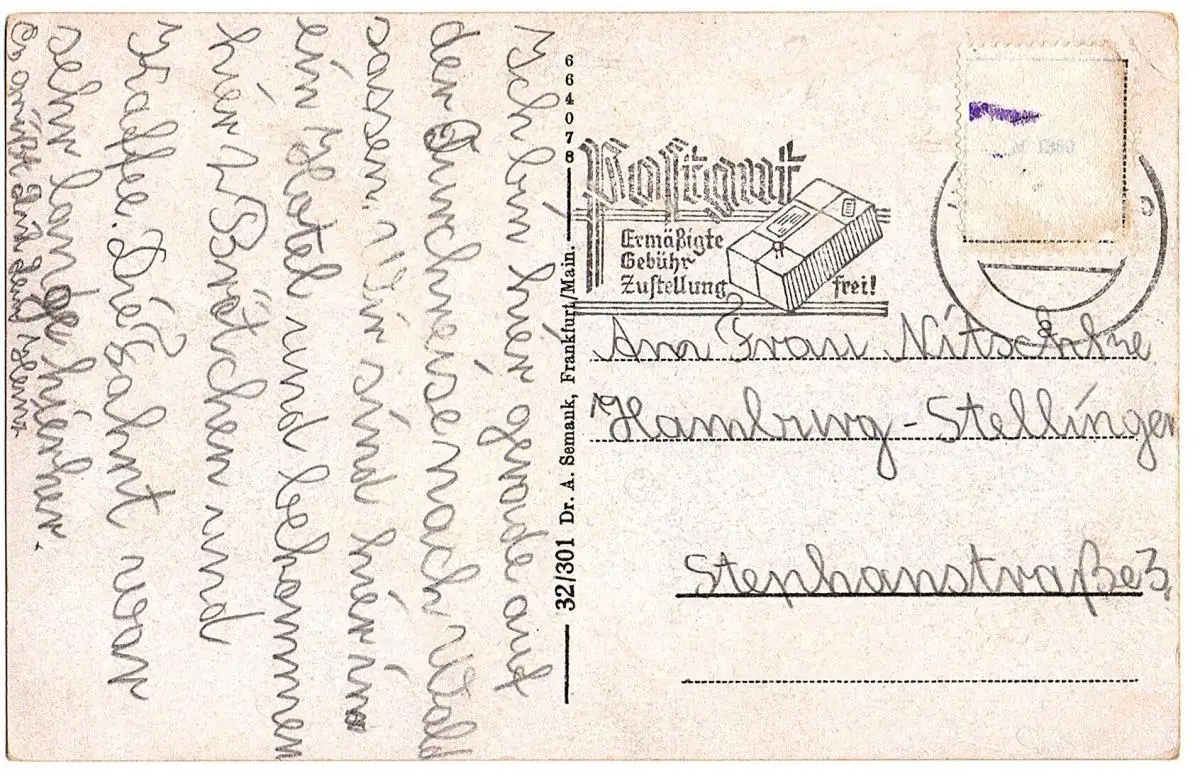 Ich bin hier gerade auf
der Durchreise nach Wald
sassen. Wir sind hier im
ein Hotel und bekommen
hier 1 Brötchen und
Kaffee. Die Fahrt war
sehr lange hierher.
Es grüßt
664078
32/301 Dr. A. Semank, Frankfurt/Main.
Postgut
Ermäßigte
Gebühr
Zustellung frei!
An Frau Nitschke
Hamburg-Stellingen
Stephanstraße 3.